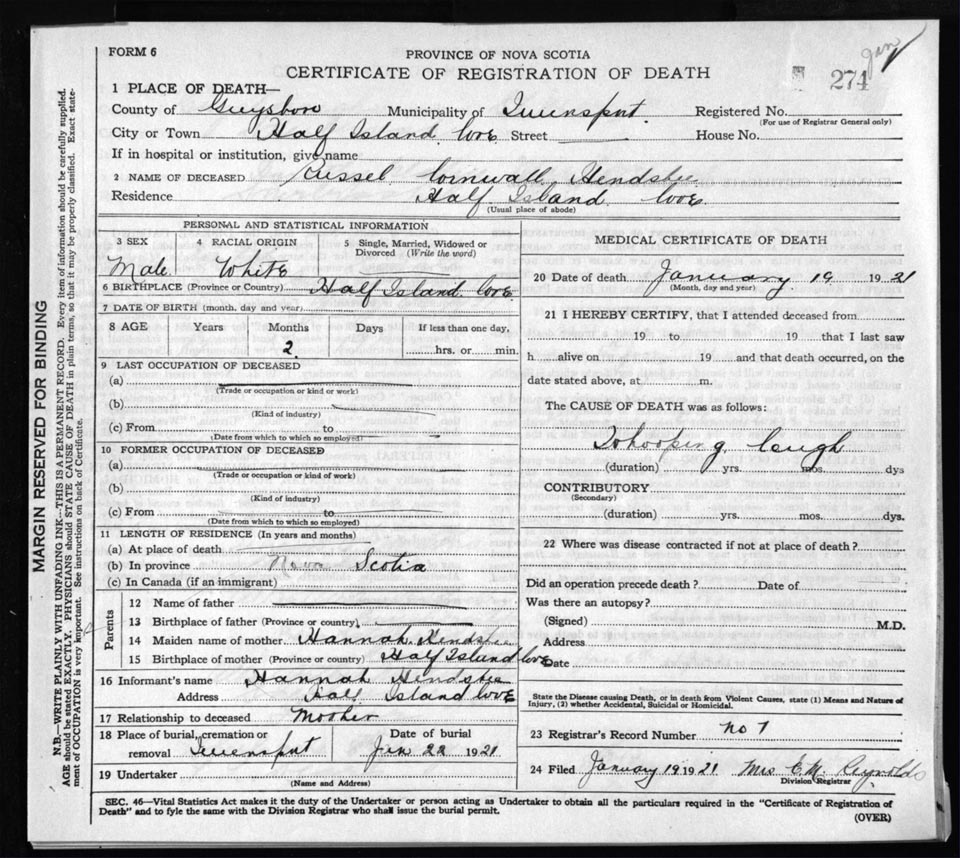 Jan
FORM 6
PROVINCE OF NOVA SCOTIA
CERTIFICATE OF REGISTRATION OF DEATH
274
1 PLACE OF DEATH—
County of Guysboro Municipality of Queensport. Registered No.
(For use of Registrar General only)
City or Town Half Island Cove Street House No.
If in hospital or institution, give name
2 NAME OF DECEASED Russel Cornwall Hendsbee
Residence Half Island Cove
(Usual place of abode)
PERSONAL AND STATISTICAL INFORMATION
3 SEX 4 RACIAL ORIGIN 5 Single, Married, Widowed or Divorced (Write the word)
Male White
6 BIRTHPLACE (Province or Country) Half Island Cove
7 DATE OF BIRTH (month, day and year)
8 AGE Years Months Days If less than one day,
2 hrs. or min.
9 LAST OCCUPATION OF DECEASED
(a)
(Trade or occupation or kind or work)
(b)
(Kind of industry)
(c) From to
(Date from which to which so employed)
10 FORMER OCCUPATION OF DECEASED
(a)
(Trade or occupation or kind of work)
(b)
(Kind of industry)
(c) From to
(Date from which to which so employed)
11 LENGTH OF RESIDENCE (In years and months)
(a) At place of death
(b) In province Nova Scotia
(c) In Canada (if an immigrant)
Parents
12 Name of father
13 Birthplace of father (Province or country)
14 Maiden name of mother Hannah Hendsbee
15 Birthplace of mother (Province or country) Half Island Cove
16 Informant's name Hannah Hendsbee
Address Half Island Cove
17 Relationship to deceased Mother
18 Place of burial, cremation or removal Queensport Date of burial Jan 22 1921
19 Undertaker
(Name and Address)
MEDICAL CERTIFICATE OF DEATH
20 Date of death January 19 1921
(Month, day and year)
21 I HEREBY CERTIFY, that I attended deceased from
19 to 19 that I last saw
h alive on 19 and that death occurred, on the
date stated above, at m.
The CAUSE OF DEATH was as follows:
Whooping Cough
(duration) yrs. mos. dys
CONTRIBUTORY
(Secondary)
(duration) yrs. mos. dys.
22 Where was disease contracted if not at place of death?
Did an operation precede death? Date of
Was there an autopsy?
(Signed) M.D.
Address
Date
State the Disease causing Death, or in death from Violent Causes, state (1) Means and Nature of
Injury, (2) whether Accidental, Suicidal or Homicidal.
23 Registrar's Record Number No 1
24 Filed January 19 1921 Mrs E.M. Reynolds
Division Registrar
SEC. 46—Vital Statistics Act makes it the duty of the Undertaker or person acting as Undertaker to obtain all the particulars required in the "Certificate of Registration of
Death" and to fyle the same with the Division Registrar who shall issue the burial permit.
(OVER)
MARGIN RESERVED FOR BINDING
N.B.—WRITE PLAINLY WITH UNFADING INK—THIS IS A PERMANENT RECORD. Every item of information should be carefully supplied.
AGE should be stated EXACTLY. PHYSICIANS should STATE CAUSE OF DEATH in plain terms, so that it may be properly classified. Exact state-
ment of OCCUPATION is very important. See instructions on back of Certificate.